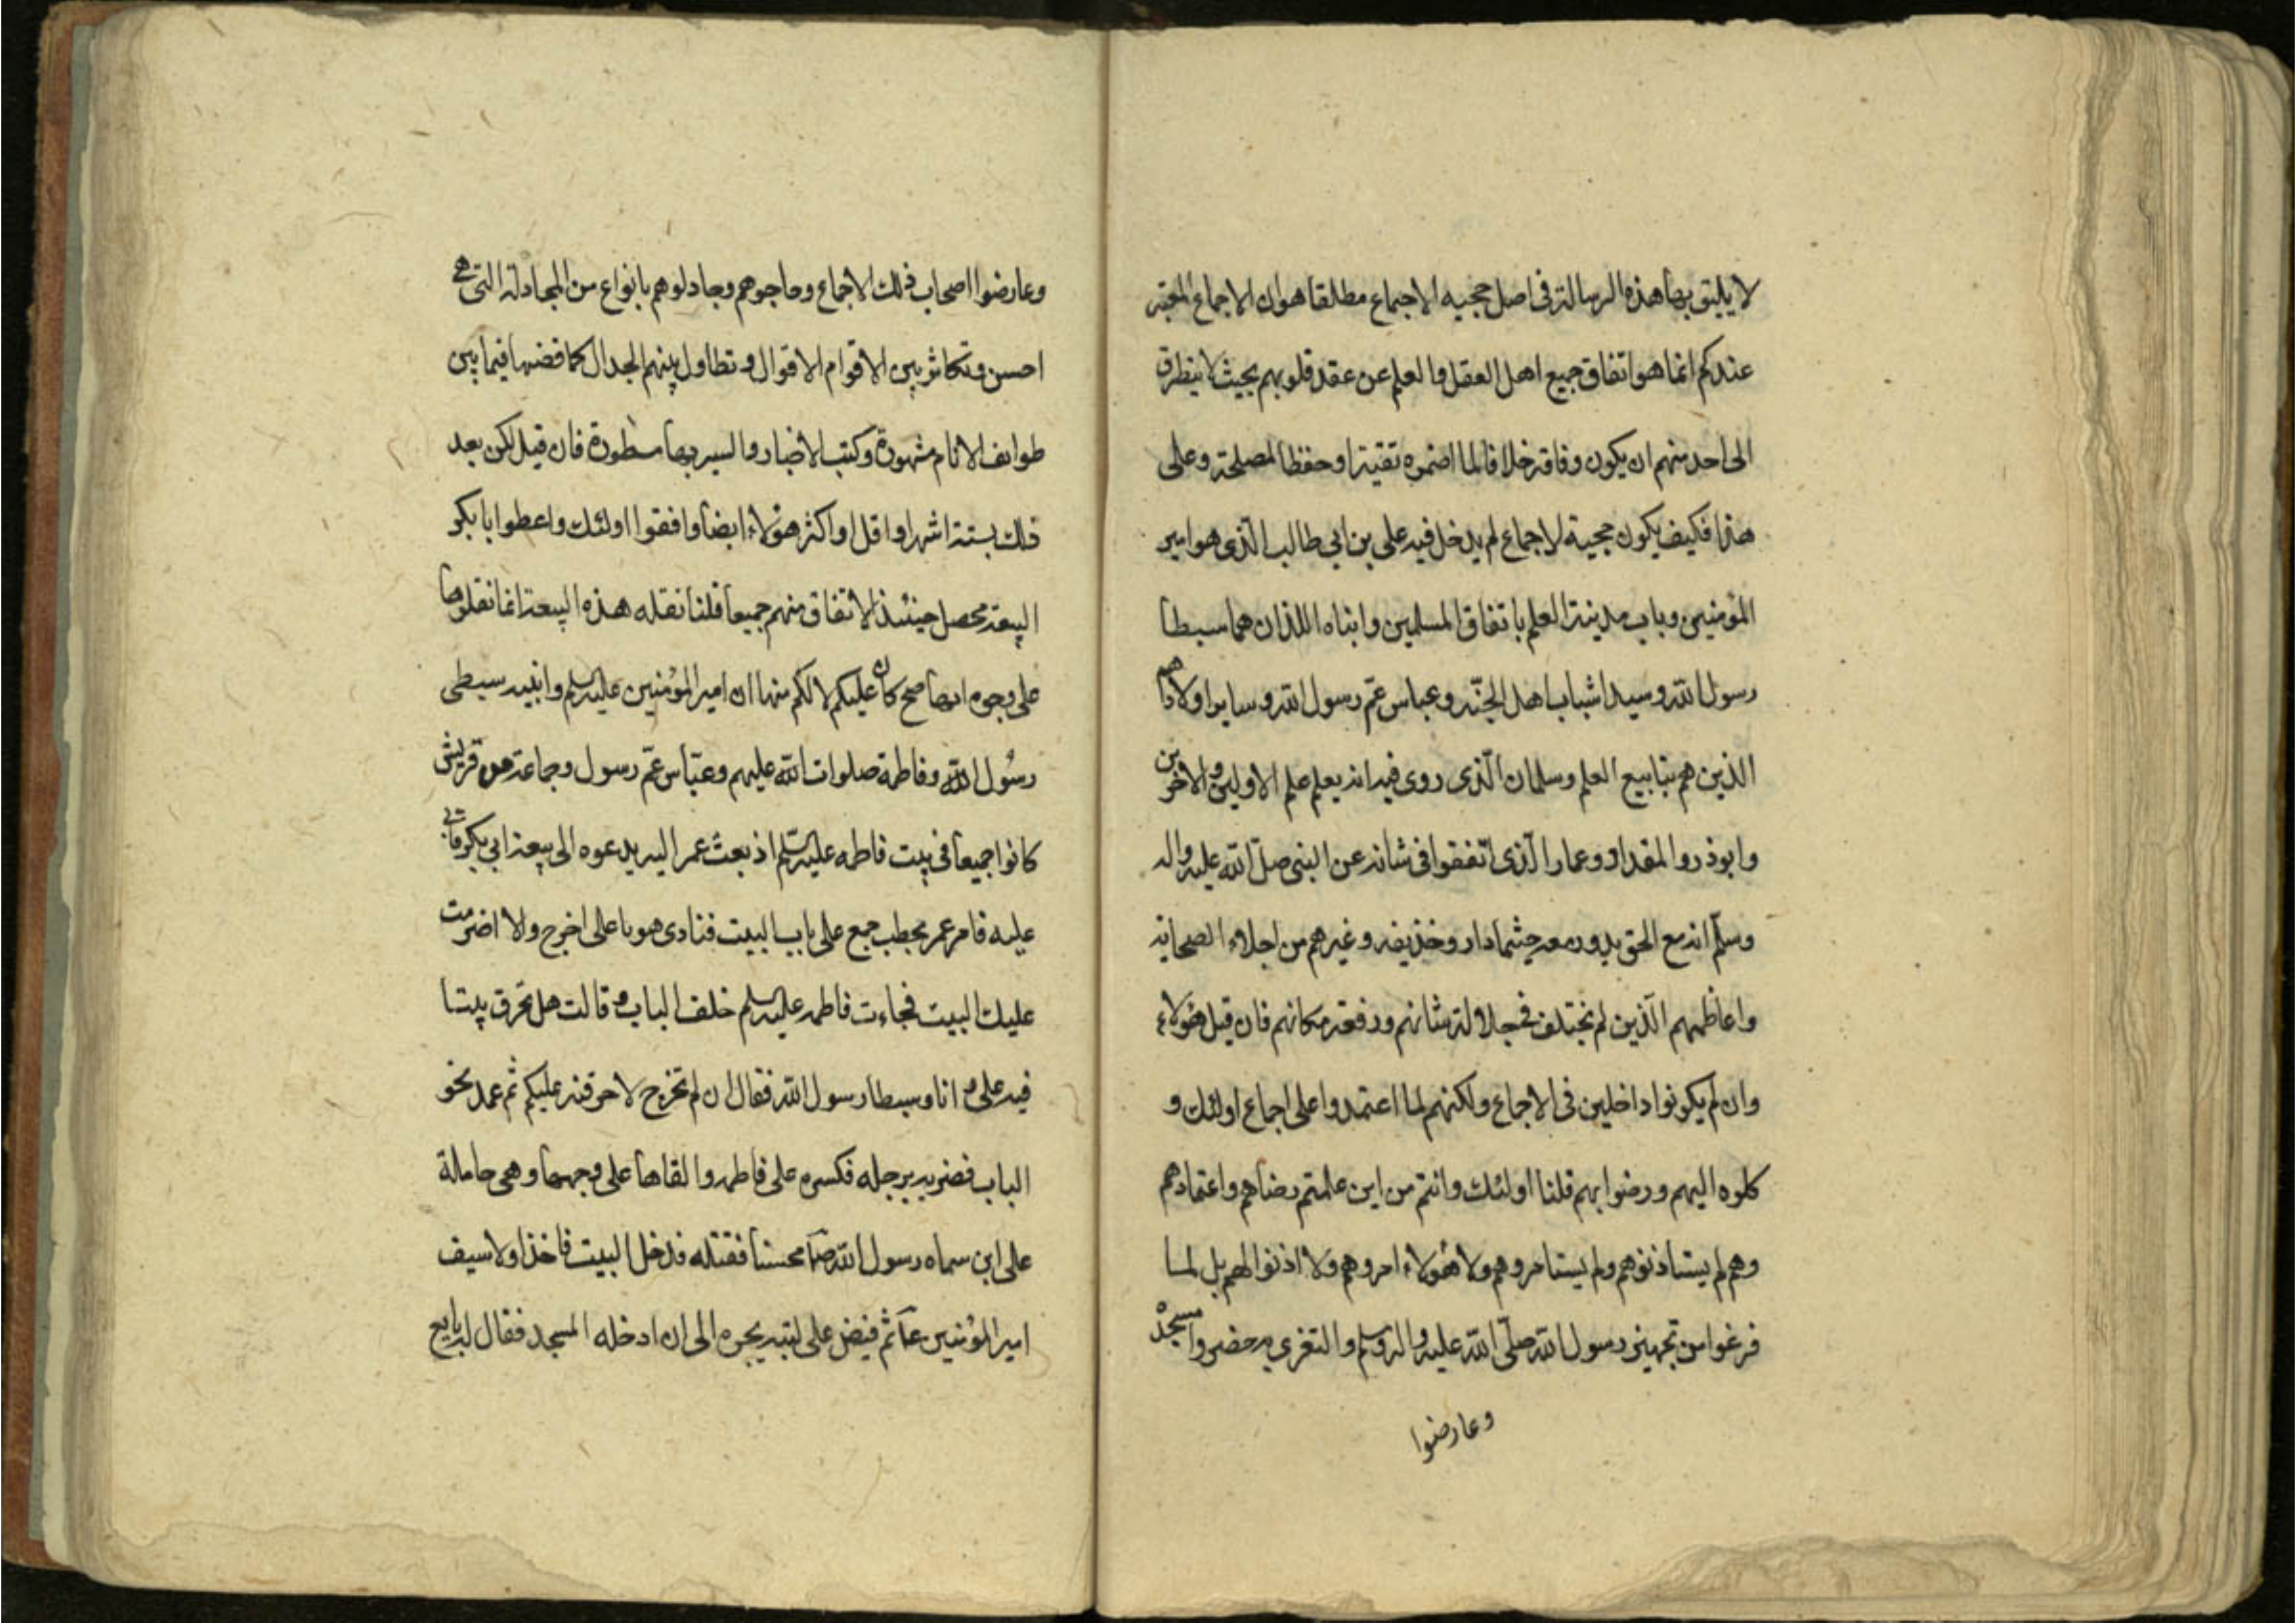 لا يليق بها هذه الرسالة في اصل حجيه الاجماع مطلقا هو ان الاجماع المعتبر
عندكم انما هو اتفاق جميع اهل العقل والعلم عن عقد قلوبهم بحيث لا يتطرق
الى احد منهم ان يكون وفاقه خلافا لما اضمره تقية او حفظا لمصلحة وعلى
هذا فكيف يكون حجية لاجماع لم يدخل فيه علي بن ابي طالب الذي هو امير
المؤمنين وباب مدينة العلم باتفاق المسلمين وابناه اللذان هما سبطا
رسول الله وسيدا شباب اهل الجنّة وعباس عمّ رسول الله وساير اولادهم
الذين هم ينابيع العلم وسلمان الّذي روى فيه انه يعلم علم الاولين والاخرين
وابوذر والمقداد وعمار الّذي اتّفقوا في شانه عن النبي صلّى الله عليه واله
وسلّم انه مع الحق يدور معه حيثما دار وخذيفه وغيرهم من اجلاء الصحابة
واعاظمهم الّذين لم يختلف في جلالة شانهم ورفعة مكانهم فان قيل هؤلاء
وان لم يكونوا داخلين في الاجماع ولكنهم لما اعتمدوا على اجماع اولئك و
كلوه اليهم ورضوا بهم قلنا اولئك وانتم من اين علمتم رضاهم واعتمادهم
وهم لم يستاذنوهم ولم يستامروهم ولا هؤلاء امروهم ولا اذنوا لهم بل لما
فرغوا من تجهيز رسول الله صلّى الله عليه واله وسلم والتغزي به حضروا مسجدْ
وعارضوا
وعارضوا اصحاب ذلك الاجماع وحاجوهم وجادلوهم بانواع من المجادلة التي هي
احسن وتكاثر بين الاقوام الاقوال وتطاول بينهم الجدال كما قضيها فيما بين
طوايف الانام مشهورة وكتب الاخبار والسير بها مسطورة فان قيل لكن بعد
ذلك بستة اشهر او اقل او اكثر هؤلاء ايضا وافقوا اولئك واعطوا بابكر
البيعة محصل حينئذ الاتفاق منهم جميعا قلنا نقله هذه البيعة انما نقلوها
على وجوه انها صح كان عليكم لا لكم منها ان امير المؤمنين عليه السلم وابنيه سبطي
رسُول الله وفاطمة صلوات الله عليهم وعبّاس عمّ رسول وجماعة من قريش
كانوا جميعا في بيت فاطمه عليه السّلم اذ بعث عمر اليه يدعوه الى بيعة ابي بكر فابى
عليه فامر عمر بحطب جمع على باب البيت فنادى هو يا على اخرج والا اضرمت
عليك البيت فجاءت فاطمه عليه السلم خلف الباب وقالت هل تحرق بيتا
فيه علي وانا وسبطا رسول الله فقال ان لم تخرج لاحرقنه عليكم ثم عمد نحو
الباب فضربه برجله فكسره على فاطمه والقاها على وجهها وهي حاملة
على ابن سماه رسول الله صلّى محسنا فقتله فدخل البيت فاخذ اولا سيف
امير المؤمنين ع ثم قبض على لبته يجره الى ان ادخله المسجد فقال له بايع